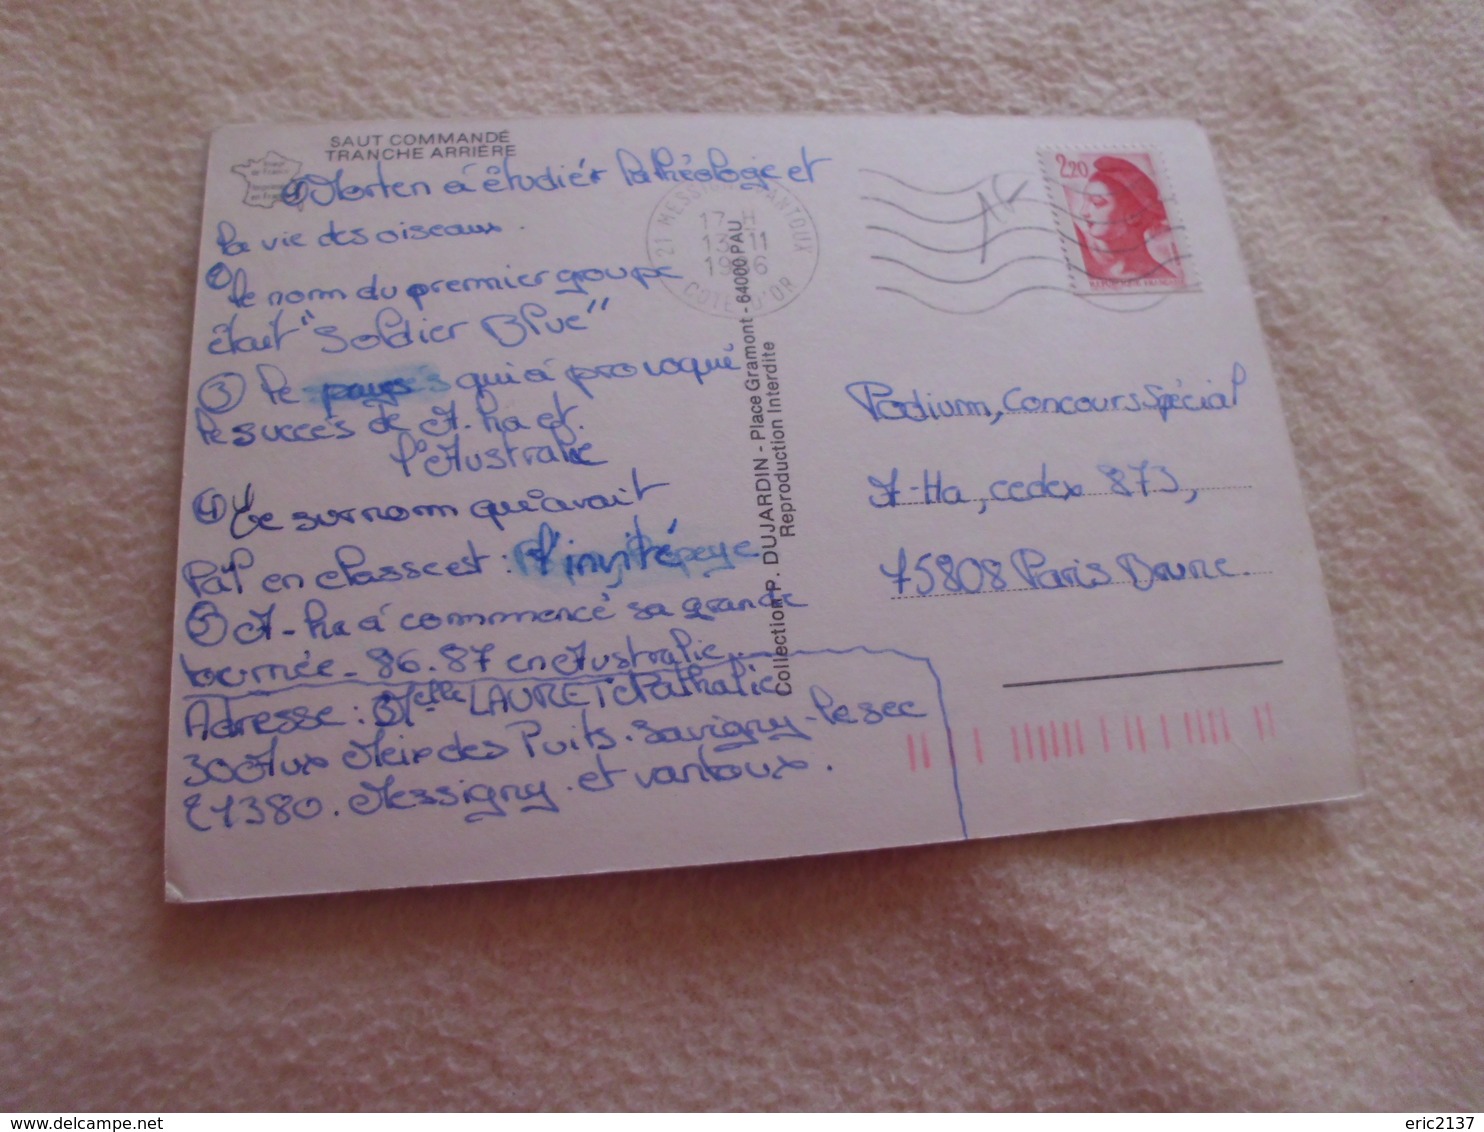 SAUT COMMANDÉ
TRANCHE ARRIÈRE
① Morten à étudiér la théologie et
la vie des oiseaux.
② le nom du premier groupe
était "Soldier Blue"
③ le pays qui à provoqué
le succés de A.ha est
l'Australie
④ Le surnom qu'avait
Pal en classe est : l'invité
⑤ A-ha à commencé sa grande
tournée - 86.87 en Australie.
Adresse : Melle LAURET Nathalie
30 Aux Meix des Puits. Savigny-le sec
21380. Messigny et vantoux.
21 MESSIGNY VANTOUX
17 H
13 11
1986
COTE D'OR
Collection P. DUJARDIN - Place Gramont - 64000 PAU
Reproduction Interdite
2,20
Podium, Concours Spécial
A-Ha, cedex 873,
75808 Paris Brune.
eric2137